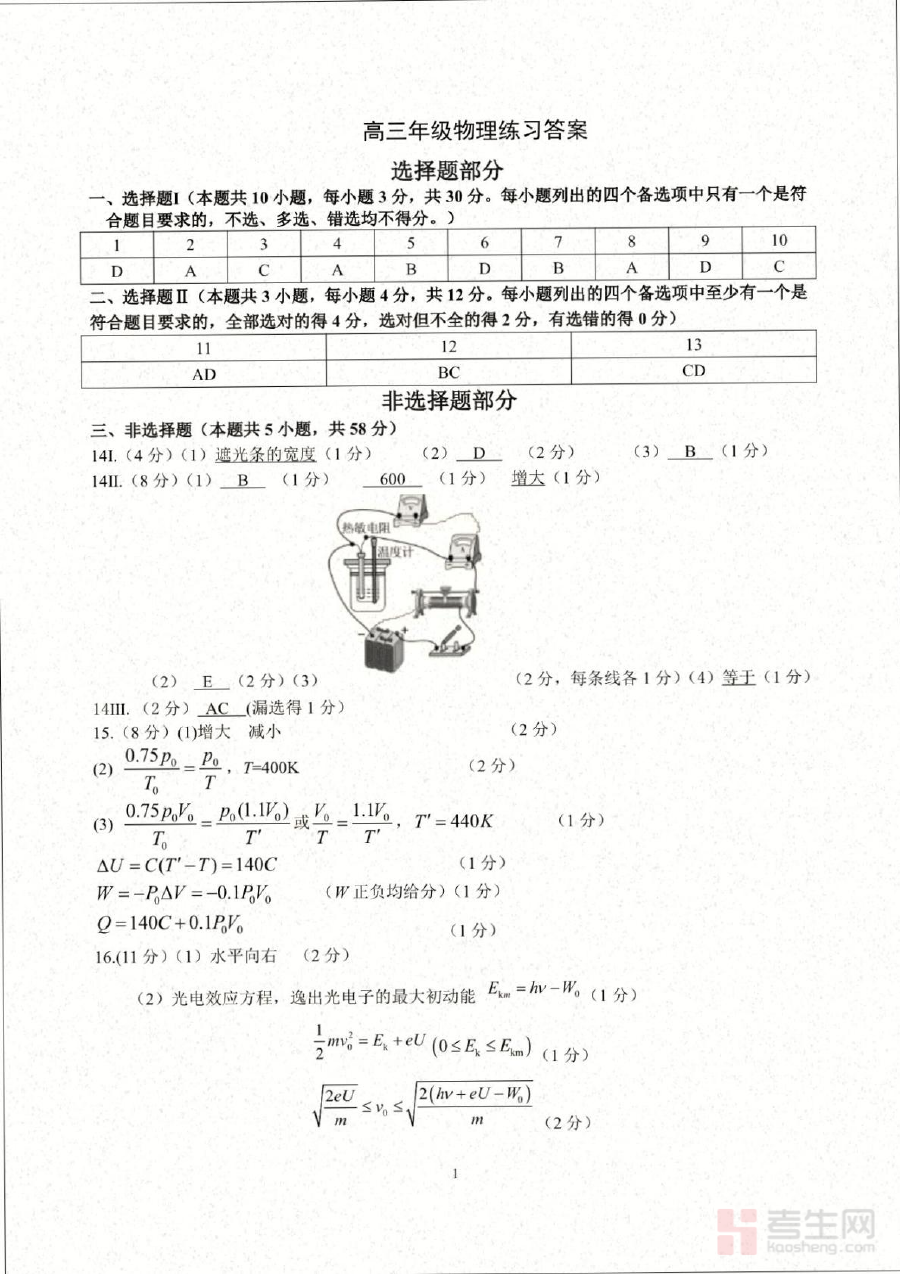 高三年级物理练习答案
选择题部分
一、选择题Ⅰ（本题共 10 小题，每小题 3 分，共 30 分。每小题列出的四个备选项中只有一个是符
合题目要求的，不选、多选、错选均不得分。）
1 2 3 4 5 6 7 8 9 10
D A C A B D B A D C
二、选择题Ⅱ（本题共 3 小题，每小题 4 分，共 12 分。每小题列出的四个备选项中至少有一个是
符合题目要求的，全部选对的得 4 分，选对但不全的得 2 分，有选错的得 0 分）
11 12 13
AD BC CD
非选择题部分
三、非选择题（本题共 5 小题，共 58 分）
14I.（4 分）（1）遮光条的宽度（1 分） （2） D （2 分） （3） B （1 分）
14II.（8 分）（1） B （1 分） 600 （1 分） 增大（1 分）
热敏电阻
温度计
− +
（2） E （2 分）（3） （2 分，每条线各 1 分）（4）等于（1 分）
14III. （2 分） AC (漏选得 1 分）
15.（8 分）(1)增大 减小 （2 分）
(2) 0.75p₀/T₀ = p₀/T ，T=400K （2 分）
(3) 0.75p₀V₀/T₀ = p₀(1.1V₀)/T′ 或 V₀/T = 1.1V₀/T′ ，T′ = 440K （1 分）
ΔU = C(T′ − T) = 140C （1 分）
W = −P₀ΔV = −0.1P₀V₀ （W 正负均给分）（1 分）
Q = 140C + 0.1P₀V₀ （1 分）
16.(11 分）（1）水平向右 （2 分）
（2）光电效应方程，逸出光电子的最大初动能 Eₖₘ = hν − W₀（1 分）
1/2 mv₀² = Eₖ + eU (0 ≤ Eₖ ≤ Eₖₘ)（1 分）
√(2eU/m) ≤ v₀ ≤ √(2(hν + eU − W₀)/m) （2 分）
1
考生网
kaosheng.com